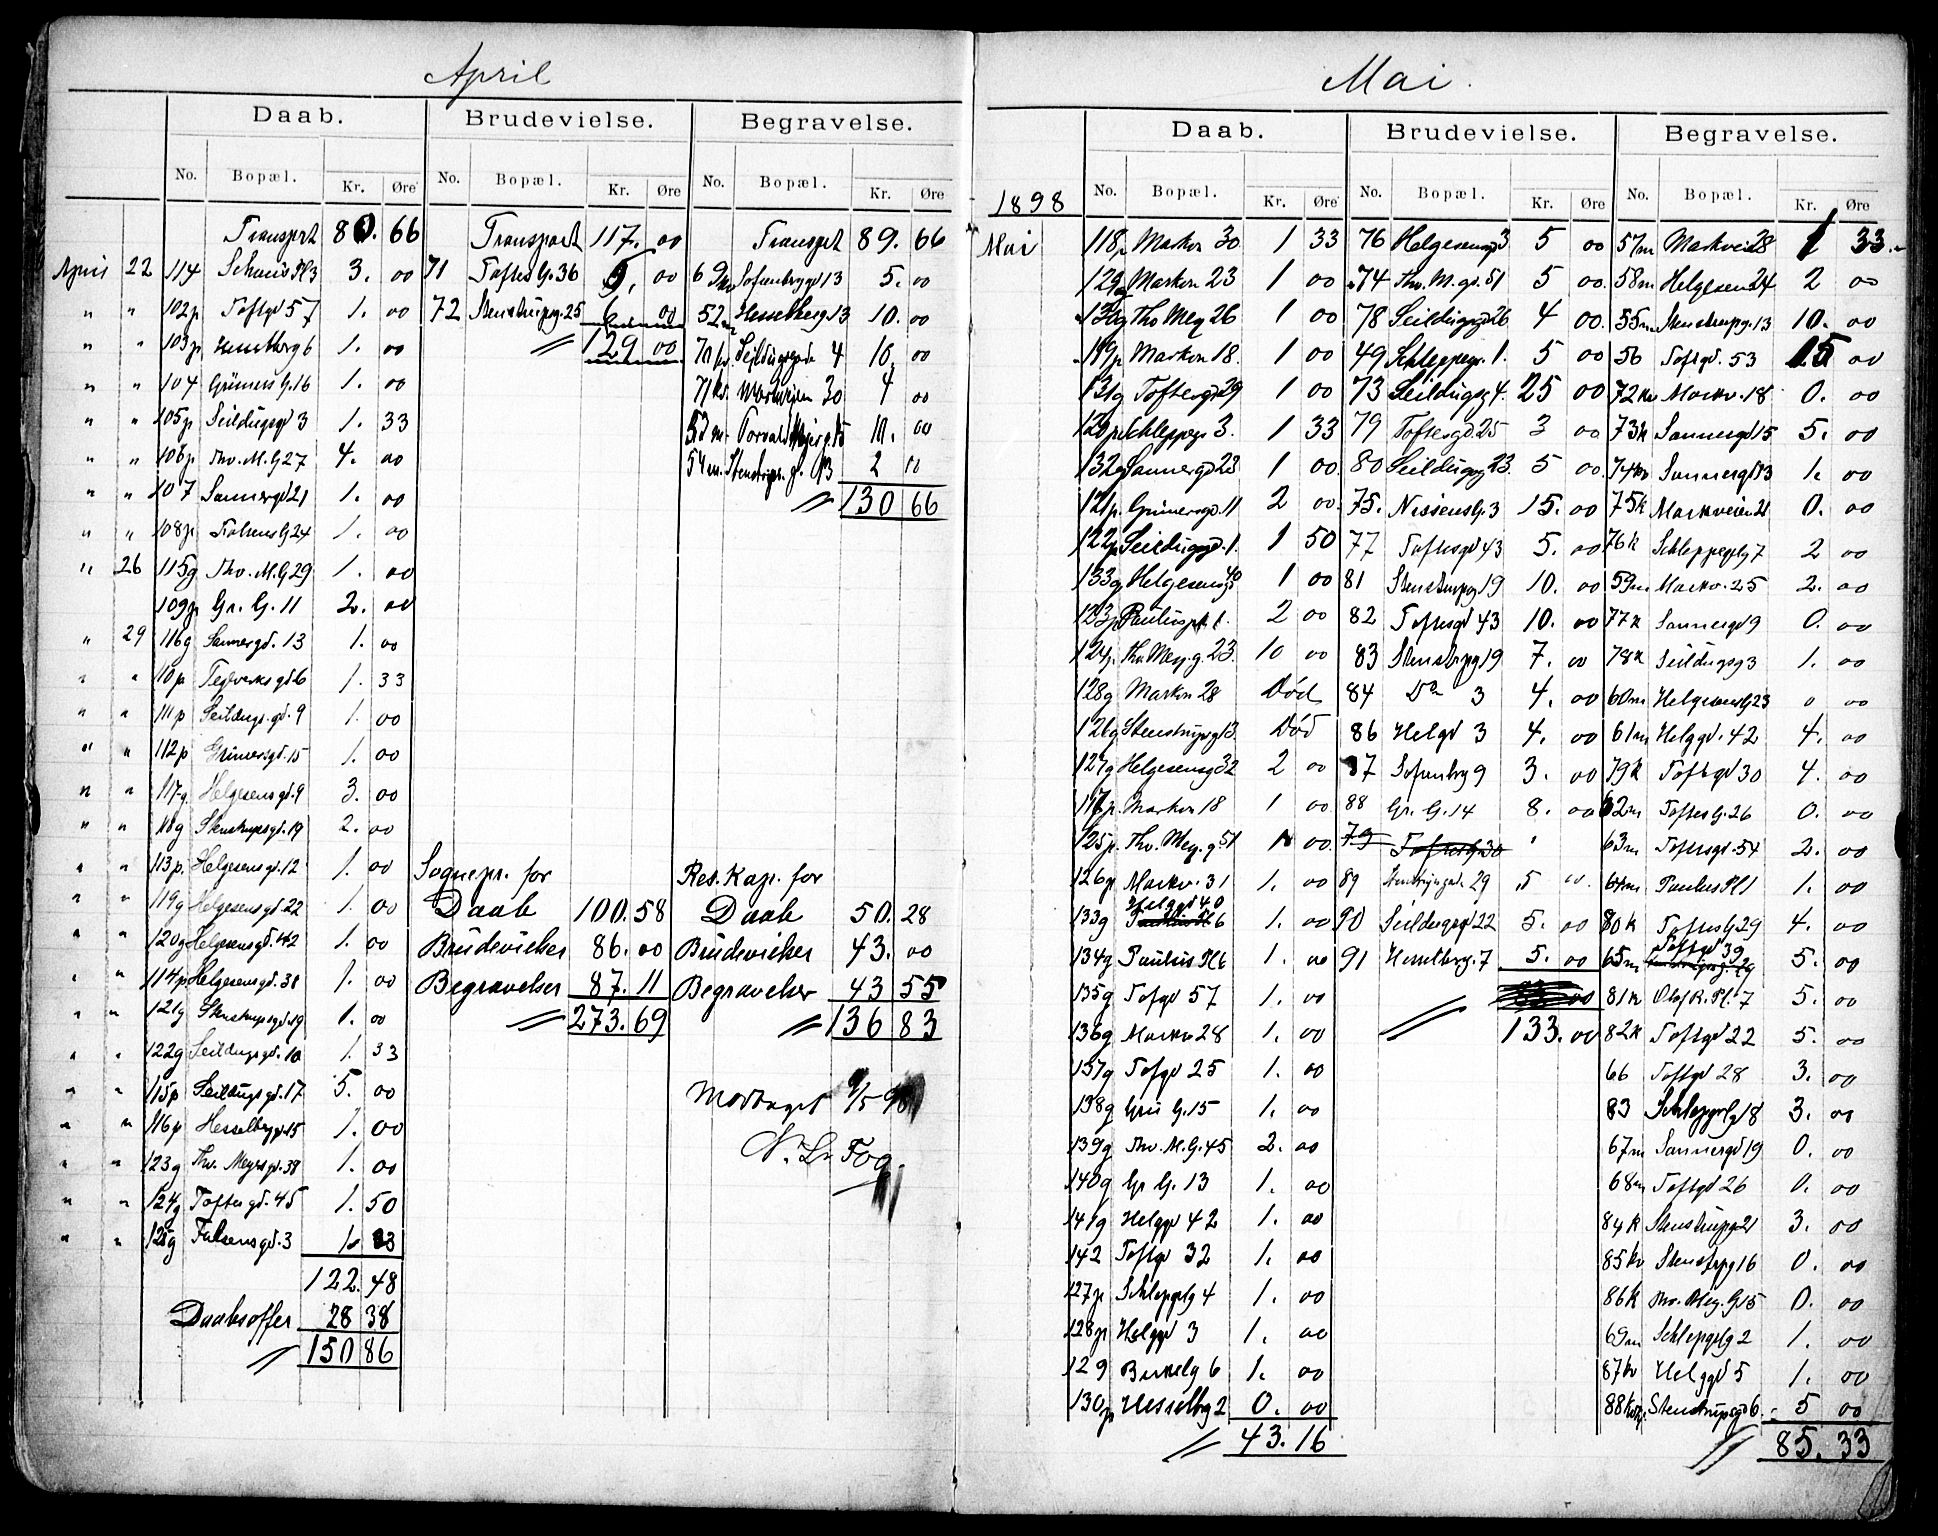 April
Daab. Brudevielse. Begravelse.
No. Bopæl. Kr. Øre No. Bopæl. Kr. Øre No. Bopæl. Kr. Øre
Transprt 80. 66 Transport 117. 00 Transprt 89. 66
April 22 114 3. 00 71 Toftes G. 36 00 Sofienbrggd 13 5. 00
" " 102p Toftgd 57 1. 00 72 Stenstrupg. 25 6 00 52m Hesselberg 13 10. 00
" " 103p 6 1. 00 129 00 Seildugsgade 4 16. 00
" " 104 Grüners G. 16 1. 00 71kv. Markveien 30 4 00
" " 105p Seildugsgd 3 1. 33 53 m. Torvald 15 10. 00
" " 106p Thv. M. G 27 4. 00 54 m. 13 2
" " 107 Sannergd 21 1. 00 130 66
" " 108p Falsens G 24 1. 00
" 26 115g Thv. M. G 29 1. 00
109p Gr. G. 11 2. 00
" 29 116g Sannergd. 13 1. 00
" " 110p Teglverksgd 6 1. 33
" " 111p Seildugs.gd. 9 1. 00
" " 112p Grünersgd. 15 1. 00
" " 117g Helgesensgd. 9 3. 00
" " 118g Stenstrupsgd. 19 2. 00
" " 113p. Helgesensgd. 12 1. 00 Sognepr. for Res. Kap. for
" " 119g Helgesensgd. 22 1. 00 Daab 100. 58 Daab 50. 28
" " 120g Helgesensgd. 42 1. 00 Brudevielser 86. 00 Brudevielser 43. 00
" " 114p Helgesensgd. 31 1. 00 Begravelser 87. 11 Begravelser 43 55
" " 121g Stenstrupsgd. 19 1. 00 273. 69 136 83
" " 122g Seildugsgd. 10 1. 33
" " 115p Seildugsgd. 17 5. 00 Modtaget 9/5 98
" " 116p Hesselbggd. 15 1. 00
" " 123g Thv. Meyrsgd. 38 1. 00
" " 124g Toftesgd. 45 1. 50
" " 125g Falsensgd. 3 1. 33
122. 48
Daabsoffer 28 38
150 86
Mai.
Daab. Brudevielse. Begravelse.
1898 No. Bopæl. Kr. Øre No. Bopæl. Kr. Øre No. Bopæl. Kr. Øre
Mai 118p Markv 30 1 33 76 Helgesensgd 3 5 00 57m Markvei 28 1 33
129g Markv 23 1 00 74 Thv. M. gd. 51 5 00 58m Helgesensgd 24 2 00
130g Thv Mey 26 1 00 78 Seildugsgd 26 4 00 55m Stenstrupg. 13 10. 00
119p Markv 18. 1 00 49 Schleppegr. 1. 5 00 56 Toftgd. 53 15 00
131g Toftesgd 29 1 00 73 Seildugsg 4. 25 00 72kv Markv. 18 0. 00
120p Schleppegr 3. 1 33 79 Toftesgd. 25 3 00 73k Sannergd 15 5. 00
132g Sannergd 23 1 00 80 Seildugsg 23. 5 00 74kv Sannergd 13 1. 00
121p. Grünersgd. 11 2 00 75. Nissens G. 3 15. 00 75k Markveien 21 0. 00
122p Seildugsgd. 1. 1 50 77 Toftesgd 43 5. 00 76k Schleppeglg 7 2 00
133g Helgesensgd 40 1 00 81 Stenstrupg 19 10. 00 59m Markv. 25 2. 00
123p Pauluspl 1. 2 00 82 Toftesgd 43 10. 00 77k Sannergd 9 0. 00
124p. Thv Mey. g. 23. 10 00 83 Stenstrupg 19 7. 00 78k Seildugsg 3 1. 00
128g Markv 28 Död 84 Do 3 4. 00 60m Helgesens G 23 0 00
126g Stenstrupsg 13. Död 86 Helgd 3 4. 00 61m Helggd. 42 4. 00
127g Helgesensg 32 2 00 87 Sofienbrg 9 3. 00 79k Toftgd 30 4. 00
117p. Markv 18 1 00 88 Gr. G. 14 8. 00 62m Toftes G. 26 0. 00
125p. Thv. Mey. g. 51 1 00 79 Toftes G 30 " 63m Toftesgd. 54 2. 00
126p Markv. 31 1. 00 89 29 5 00 64m Paulus Pl 1 1. 00
133g Helggd 40 1. 00 90 Seildugsgd 22 5. 00 80k Toftes G. 29 4. 00
134g Paulus Pl 6 1. 00 91 Hesselbrg. 7 5. 00 65m Toftgd 39 5. 00
135g Tofgd 57 1. 00 81k Olaf R. Pl. 7 5. 00
136g Markv 28 1. 00 133. 00 82k Toftgd 22 5. 00
137g Tofgd 25 1. 00 66 Toftgd 28 3. 00
138g Grü G. 15 1. 00 83 Schleppegrlg 18 3. 00
139g Thv. M. G. 45 2. 00 67m Sannergd 19 0. 00
140g Gr G. 13 1. 00 68m Toftgd 26 0. 00
141g Helggd 42 1. 00 84k Stenstrupg 21 3. 00
142 Toftgd 32 1. 00 85kv Stenstrpg 16 0. 00
127p Schleppglg 4 1. 00 86k Thv. Mey. G 15 0. 00
128p Helggd 3 1. 00 69m Schleppglg 2 1. 00
129 6 1. 00 87kv Helggd 5 1. 00
130p Hesselbg 2 0. 00 Stenstrupsgd 6. 5 00
43. 16 85. 33